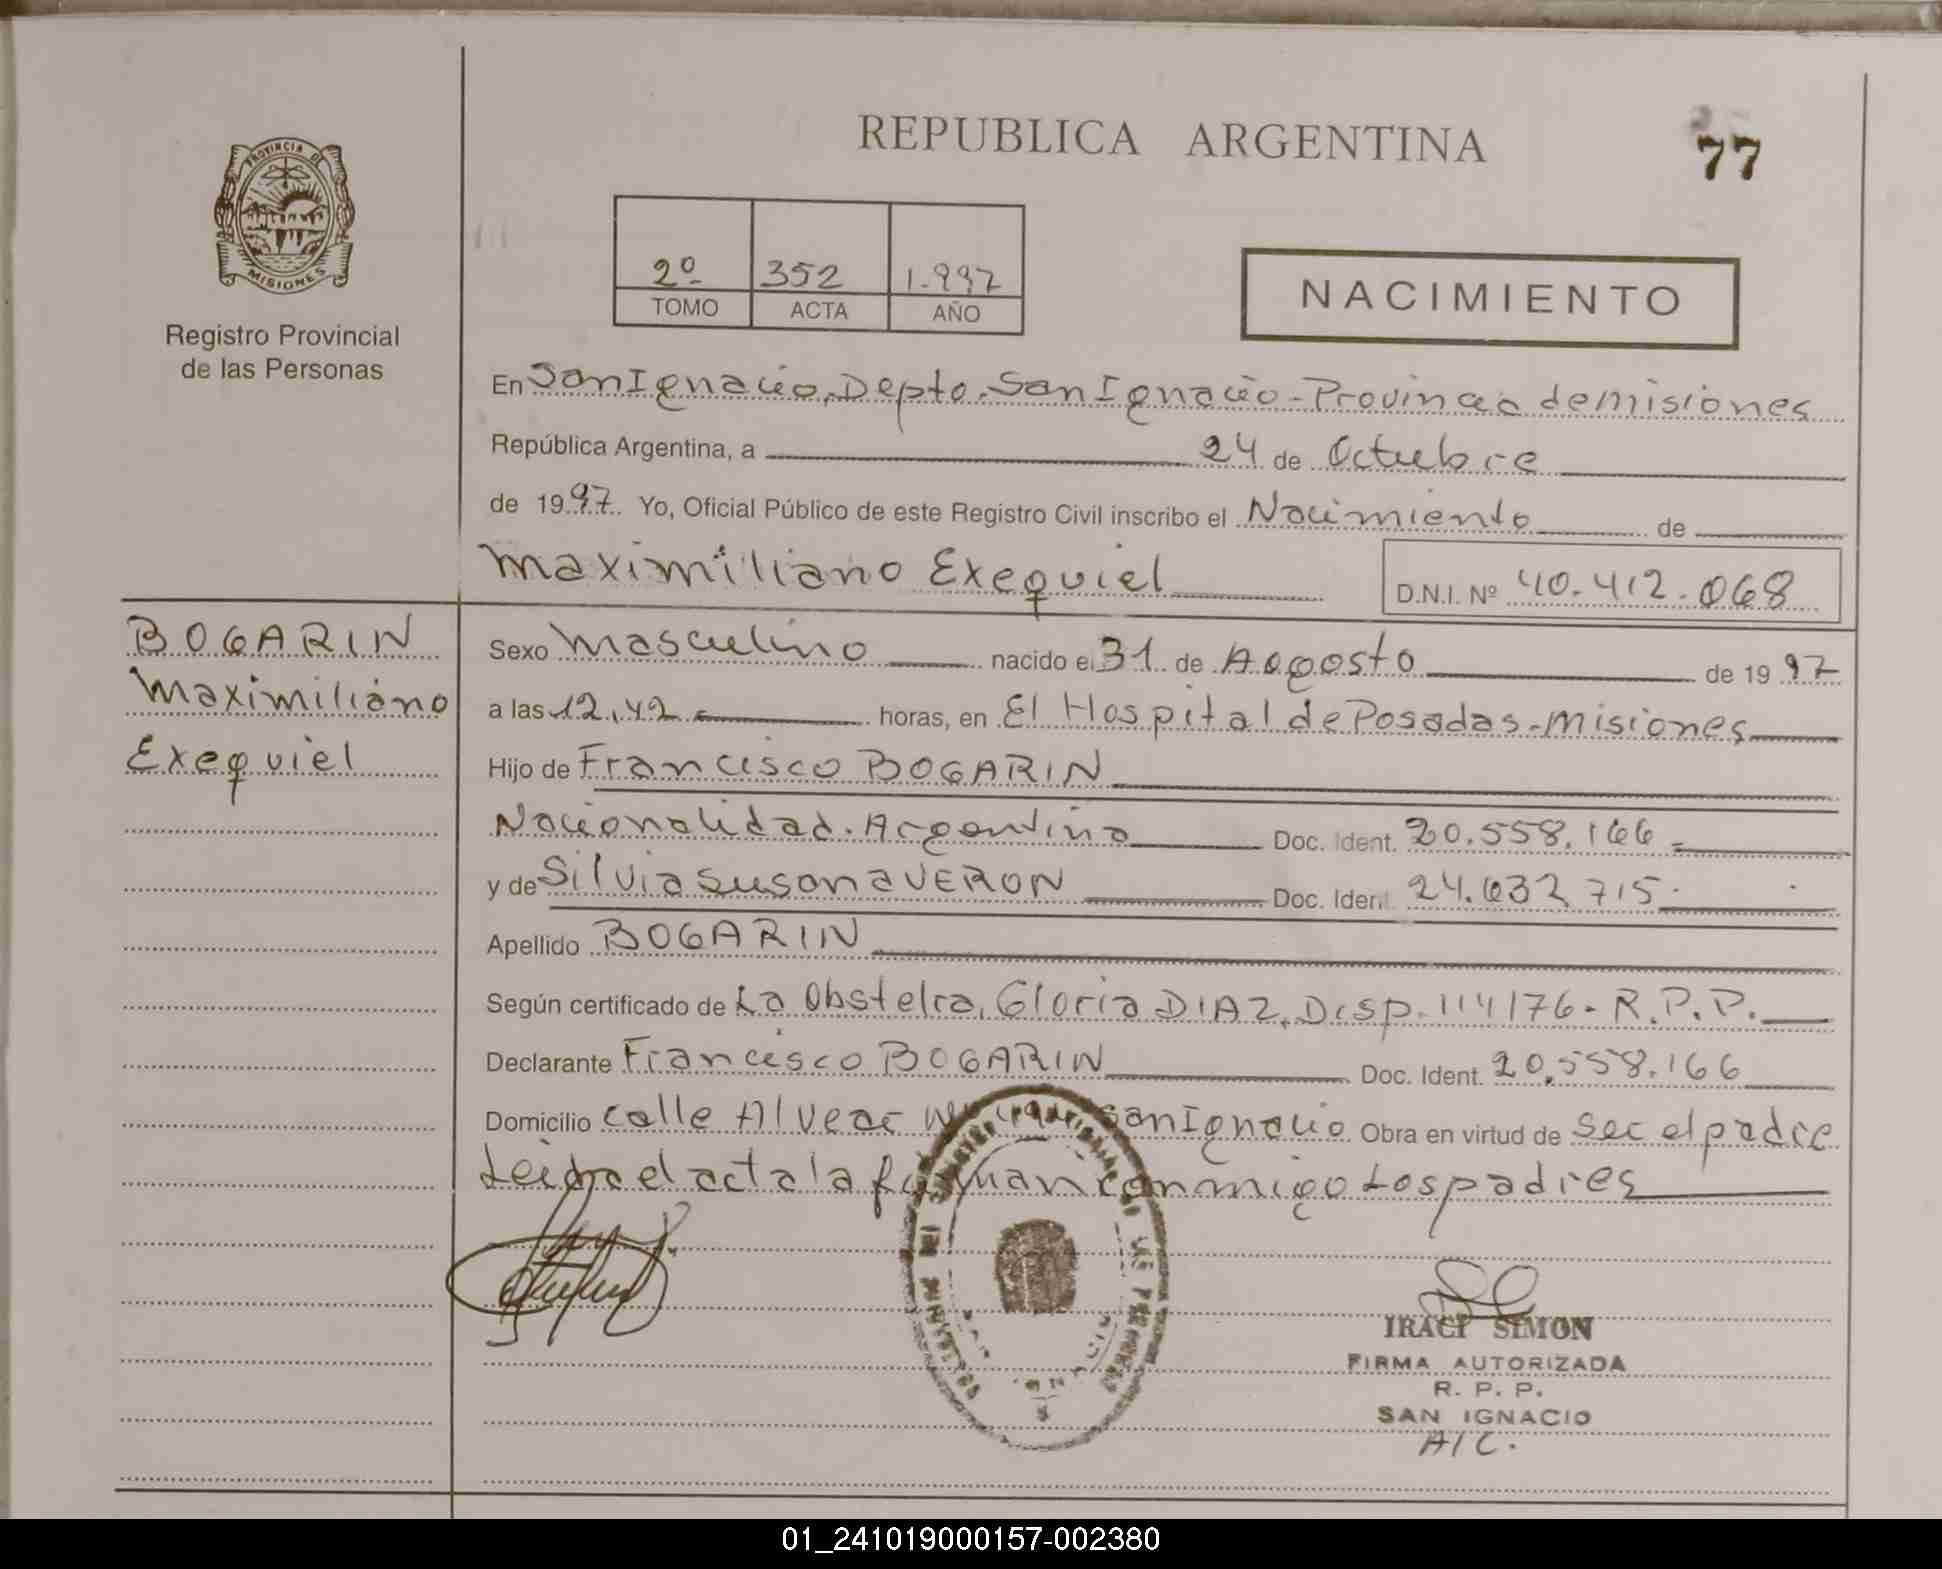 REPUBLICA ARGENTINA
77
PROVINCIA DE
MISIONES
Registro Provincial
de las Personas
2º 352 1.997
TOMO ACTA AÑO
NACIMIENTO
En San Ignacio, Depto. San Ignacio - Provincia de misiones
República Argentina, a 24 de Octubre
de 1997. Yo, Oficial Público de este Registro Civil inscribo el Nacimiento de
Maximiliano Exequiel D.N.I. Nº 40.412.068
BOGARIN
Maximiliano
Exequiel
Sexo Masculino nacido el 31 de Agosto de 1997
a las 12,42 horas, en El Hospital de Posadas - Misiones
Hijo de Francisco BOGARIN
Nacionalidad. Argentina Doc. Ident. 20.558.166
y de Silvia Susana VERON Doc. Ident. 24.632.715
Apellido BOGARIN
Según certificado de La Obstetra, Gloria DIAZ, Disp. 114/76 - R.P.P.
Declarante Francisco BOGARIN Doc. Ident. 20.558.166
Domicilio Calle Alvear San Ignacio Obra en virtud de ser el padre
Leida el acta la firman conmigo Los padres
IRACI SIMON
FIRMA AUTORIZADA
R. P. P.
SAN IGNACIO
A/C.
01_241019000157-002380